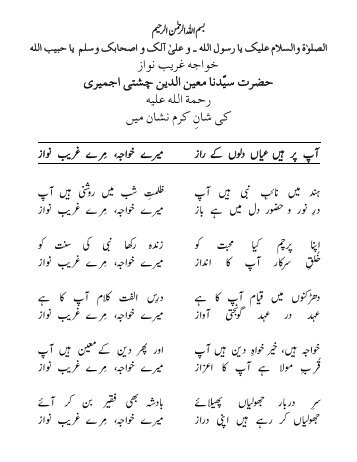 بسم اللہ الرحمٰن الرحیم
الصلوٰۃ والسلام علیک یا رسول اللہ ۔ و علیٰ آلک و اصحابک وسلم یا حبیب اللہ
خواجہ غریب نواز
حضرت سیّدنا معین الدین چشتی اجمیری
رحمۃ اللہ علیہ
کی شانِ کرم نشان میں
آپ پر ہیں عیاں دلوں کے راز میرے خواجہ، مِرے غریب نواز
ہند میں نائبِ نبی ہیں آپ ظلمتِ شب میں روشنی ہیں آپ
درِ نور و حضور دل میں ہے باز میرے خواجہ، مِرے غریب نواز
اپنا پرچم کیا محبت کو زندہ رکھا نبی کی سنت کو
خُلقِ سرکار آپ کا انداز میرے خواجہ، مِرے غریب نواز
دھڑکنوں میں قیام آپ کا ہے درسِ الفت کلام آپ کا ہے
عہد در عہد گونجتی آواز میرے خواجہ، مِرے غریب نواز
خواجہ ہیں، خیر خواہِ دین ہیں آپ اور پھر دین کے معین ہیں آپ
قُربِ مولا ہے آپ کا اعزاز میرے خواجہ، مِرے غریب نواز
سرِ دربار جھولیاں پھیلائے بادشہ بھی فقیر بن کر آئے
جھولیاں کر رہے ہیں اپنی دراز میرے خواجہ، مِرے غریب نواز